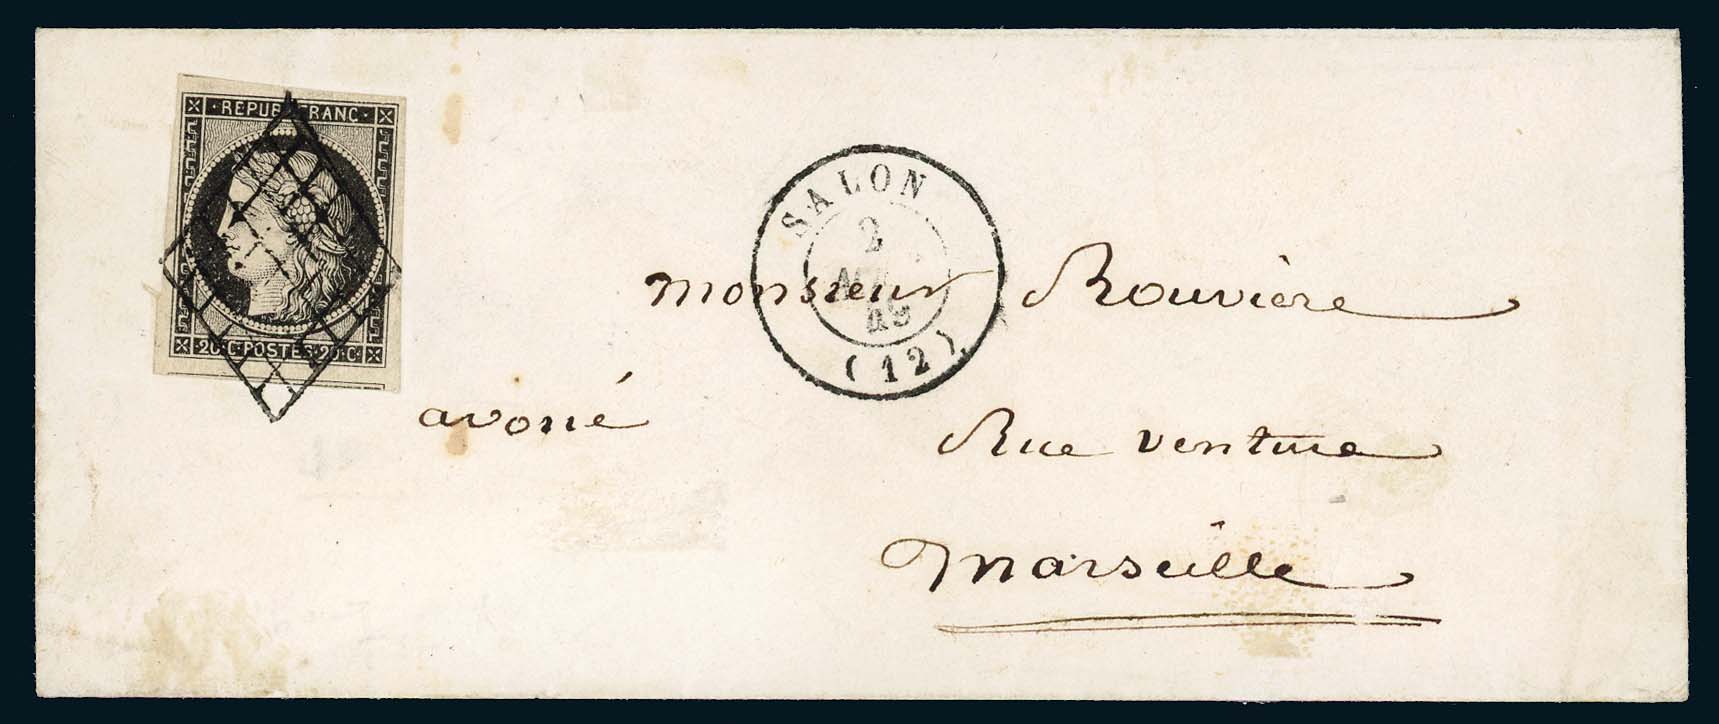 · REPUB FRANC ·
20 · C · POSTES · 20 · C ·
SALON
2
49
(12)
monsieur Rouvière
avoué
Rue venture
Marseille